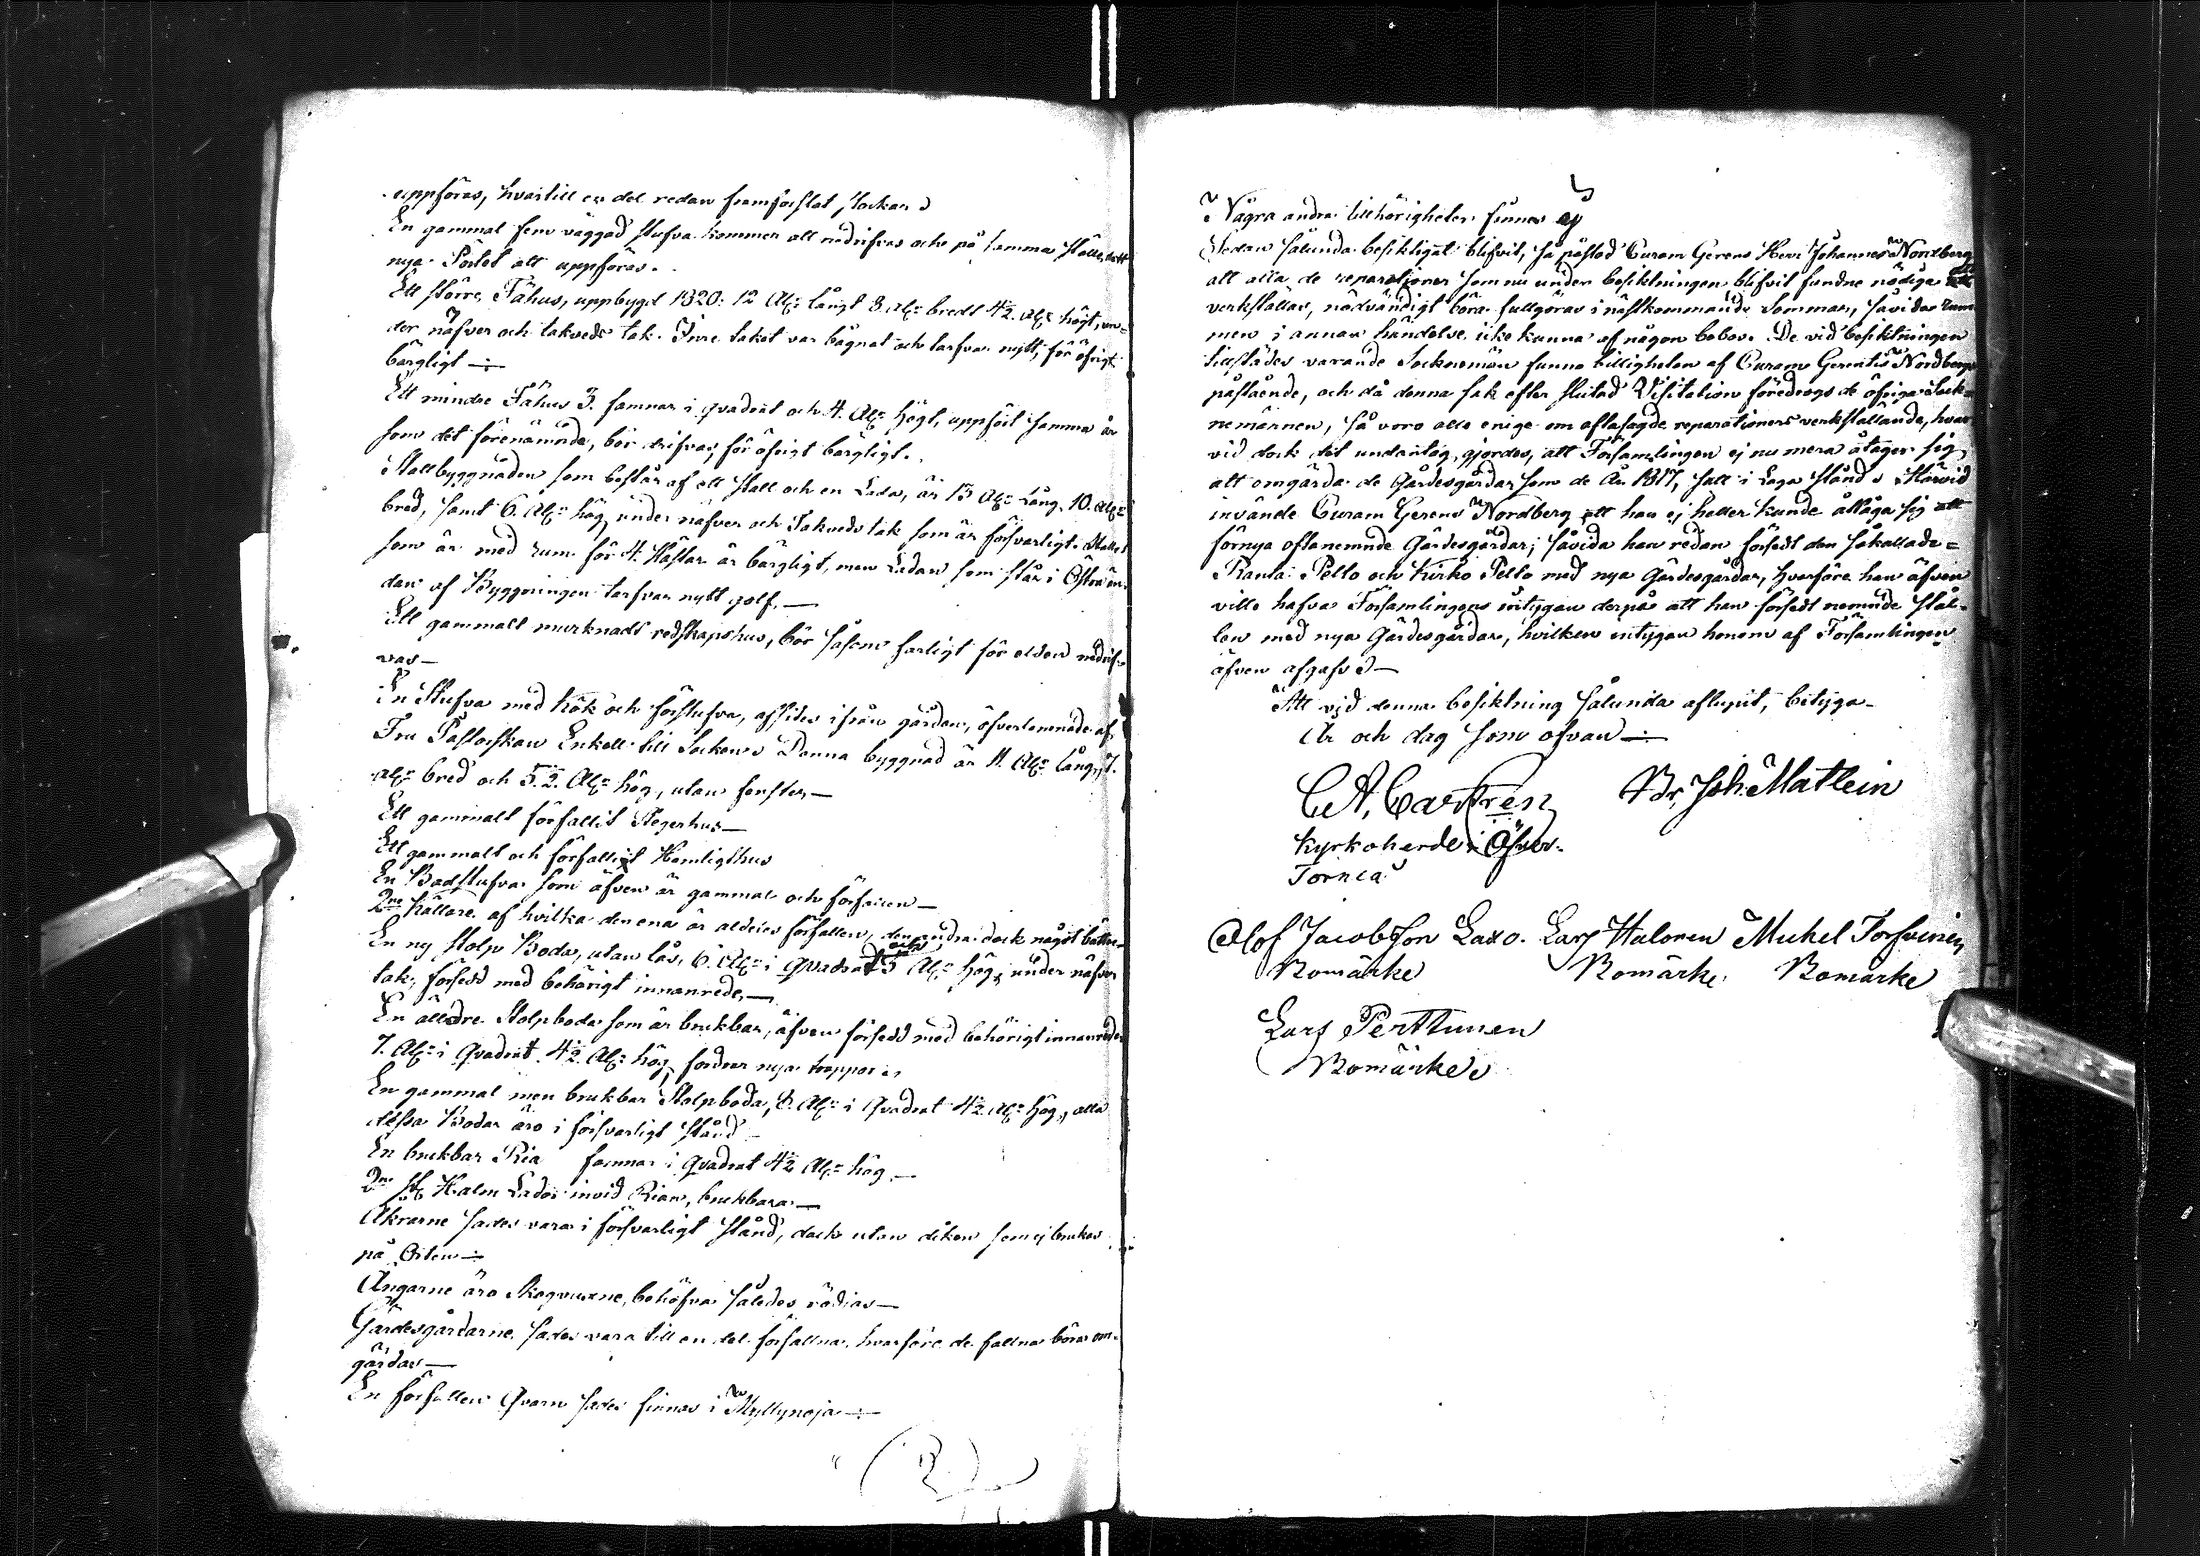 uppföras, hvartill en del redan framforslat stockar
En gammal fem väggad stufva kommer att nedrifvas och på samma ställe
nya Pörtet att uppföras.
Ett större Fähus, uppbygd 1820: 12 Alr långt 8 alr bredt 4½ alr högt, un-
der näfver och takveds tak. Inre taket var bågnat och tarfvar nytt, för öfrigt
bärgligt
Ett mindre Fähus 3. famnar i qvadrat och 4. Alr högt, uppfört samma år
som det förenämnda, bör drifvas, för öfrigt bärgligt.
Stallbyggnaden som består af ett stall och en Lada, är 13 Alr Lång, 10. Alr
bred, samt 6. Alr hög under näfver och Takveds tak som är försvarligt. Stallet
som är med rum för 4. Hästar är bärgligt, men Ladan som står i Östra än-
dan af Byggningen tarfvar nytt golf.
Ett gammalt murknadt redskapshus, bör såsom farligt för elden nedrif-
vas
En Stufva med kök och förstufva, afsides ifrån gården, öfverlemnade af
Fru Pastorskan Enkell till Socken. Denna byggnad är 11. Alr lång, 7.
alr bred och 5½. Alr hög, utan fenster
Ett gammalt förfallit Stegerhus
Ett gammalt och förfallit Hemligthus
En Badstufva som äfven är gammal och förfallen
2ne källare af hvilka den ena är aldeles förfallen, den andra dock något bättre
En ny stolp Boda, utan lås, 6. Alr i Qvadrat och 5 Alr hög, under näfver
tak, försedd med behörigt innanrede,
En älldre Stolpboda som är brukbar, äfven försedd med behörigt innanrede
7. Alr i Qvadrat 4½ Alr hög, fordrar nya trappor
En gammal men brukbar Stolpboda, 6. Alr i Qvadrat 4½ Alr hög, alla
dessa Bodar äro i försvarligt stånd
En brukbar Ria famnar i Qvadrat 4½ Alr hög
2ne st Halm Lador invid Rian, brukbara
Åkrarne sades vara i försvarligt stånd, dock utan diken som ej brukas
på Orten
Ängarne äro Skogvuxne, behöfva således rödjas
Gärdesgårdarne sades vara till en del förfallna, hvarföre de fallna böra om-
gärdas
En förfallen Qvarn sades finnas i Myllynoja
Några andra tillhörigheter finnes ej
Sedan sålunda besiktigat blifvit, så påstod Curam Gerens Herr Johannes Nordberg
att alla de reparationer som nu under besiktningen blifvit fundne nödiga att
verkställas, nödvändigt böra fullgöras i nästkommande Sommar, såvida rum-
men i annan händelse icke kunna af någon bebos. De vid besiktningen
tillstädes varande Sockenemän funno billigheten af Curam Gerentis Nordbergs
påstående, och då denna sak efter slutad Visitation föredrogs de öfriga Sock-
nemännen, så voro alla enige om oftasagde reparationers verkställande, hvar
vid dock det undantag gjordes, att Församlingen ej nu mera åtager sig
att omgärda de Gärdesgårdar som de År 1817, satt i Laga stånd. Härvid
invände Curam Gerens Nordberg att han ej heller kunde åtaga sig att
förnya oftanemnde Gärdesgårdar; såvida han redan försedt den såkallade
Ranta Pello och Kirko Pello med nya Gärdesgårdar, hvarföre han äfven
ville hafva Församlingens intygan derpå att han försedt nemnde stäl-
len med nya Gärdesgårdar, hvilken intygan honom af Församlingen
äfven afgafs
Att vid denna besiktning sålunda aflupit, betyga
År och dag som ofvan
C A. Castrén Br, Joh. Matlein
Kyrkoherde i Öfver-
Torneå
Olof Jacobsson Laxo. Lars Halonen Michel Torfvinen
Bomärke Bomärke Bomärke
Lars Perttunen
Bomärke